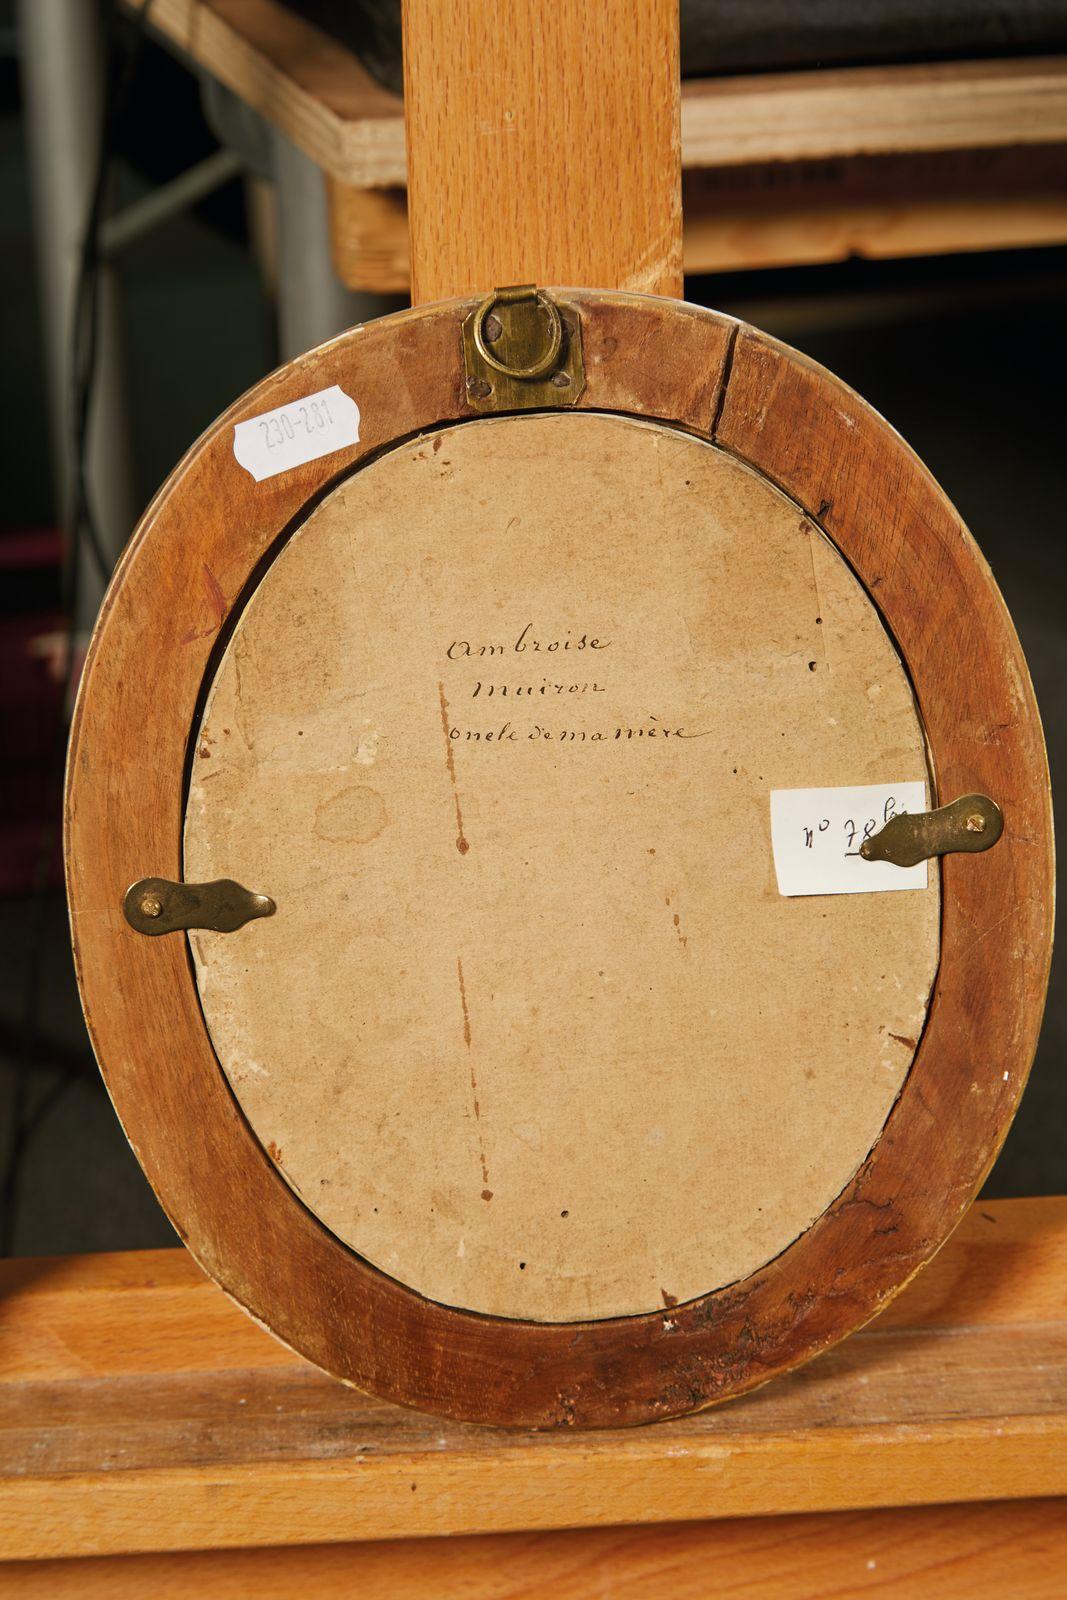 230-281
Ambroise
Muiron
oncle de ma mère
n° 78 bis